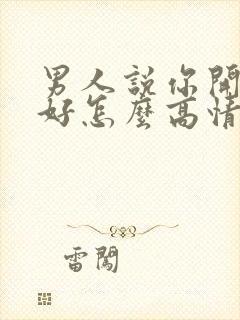 男人說你開
好怎麼高情
雷闖